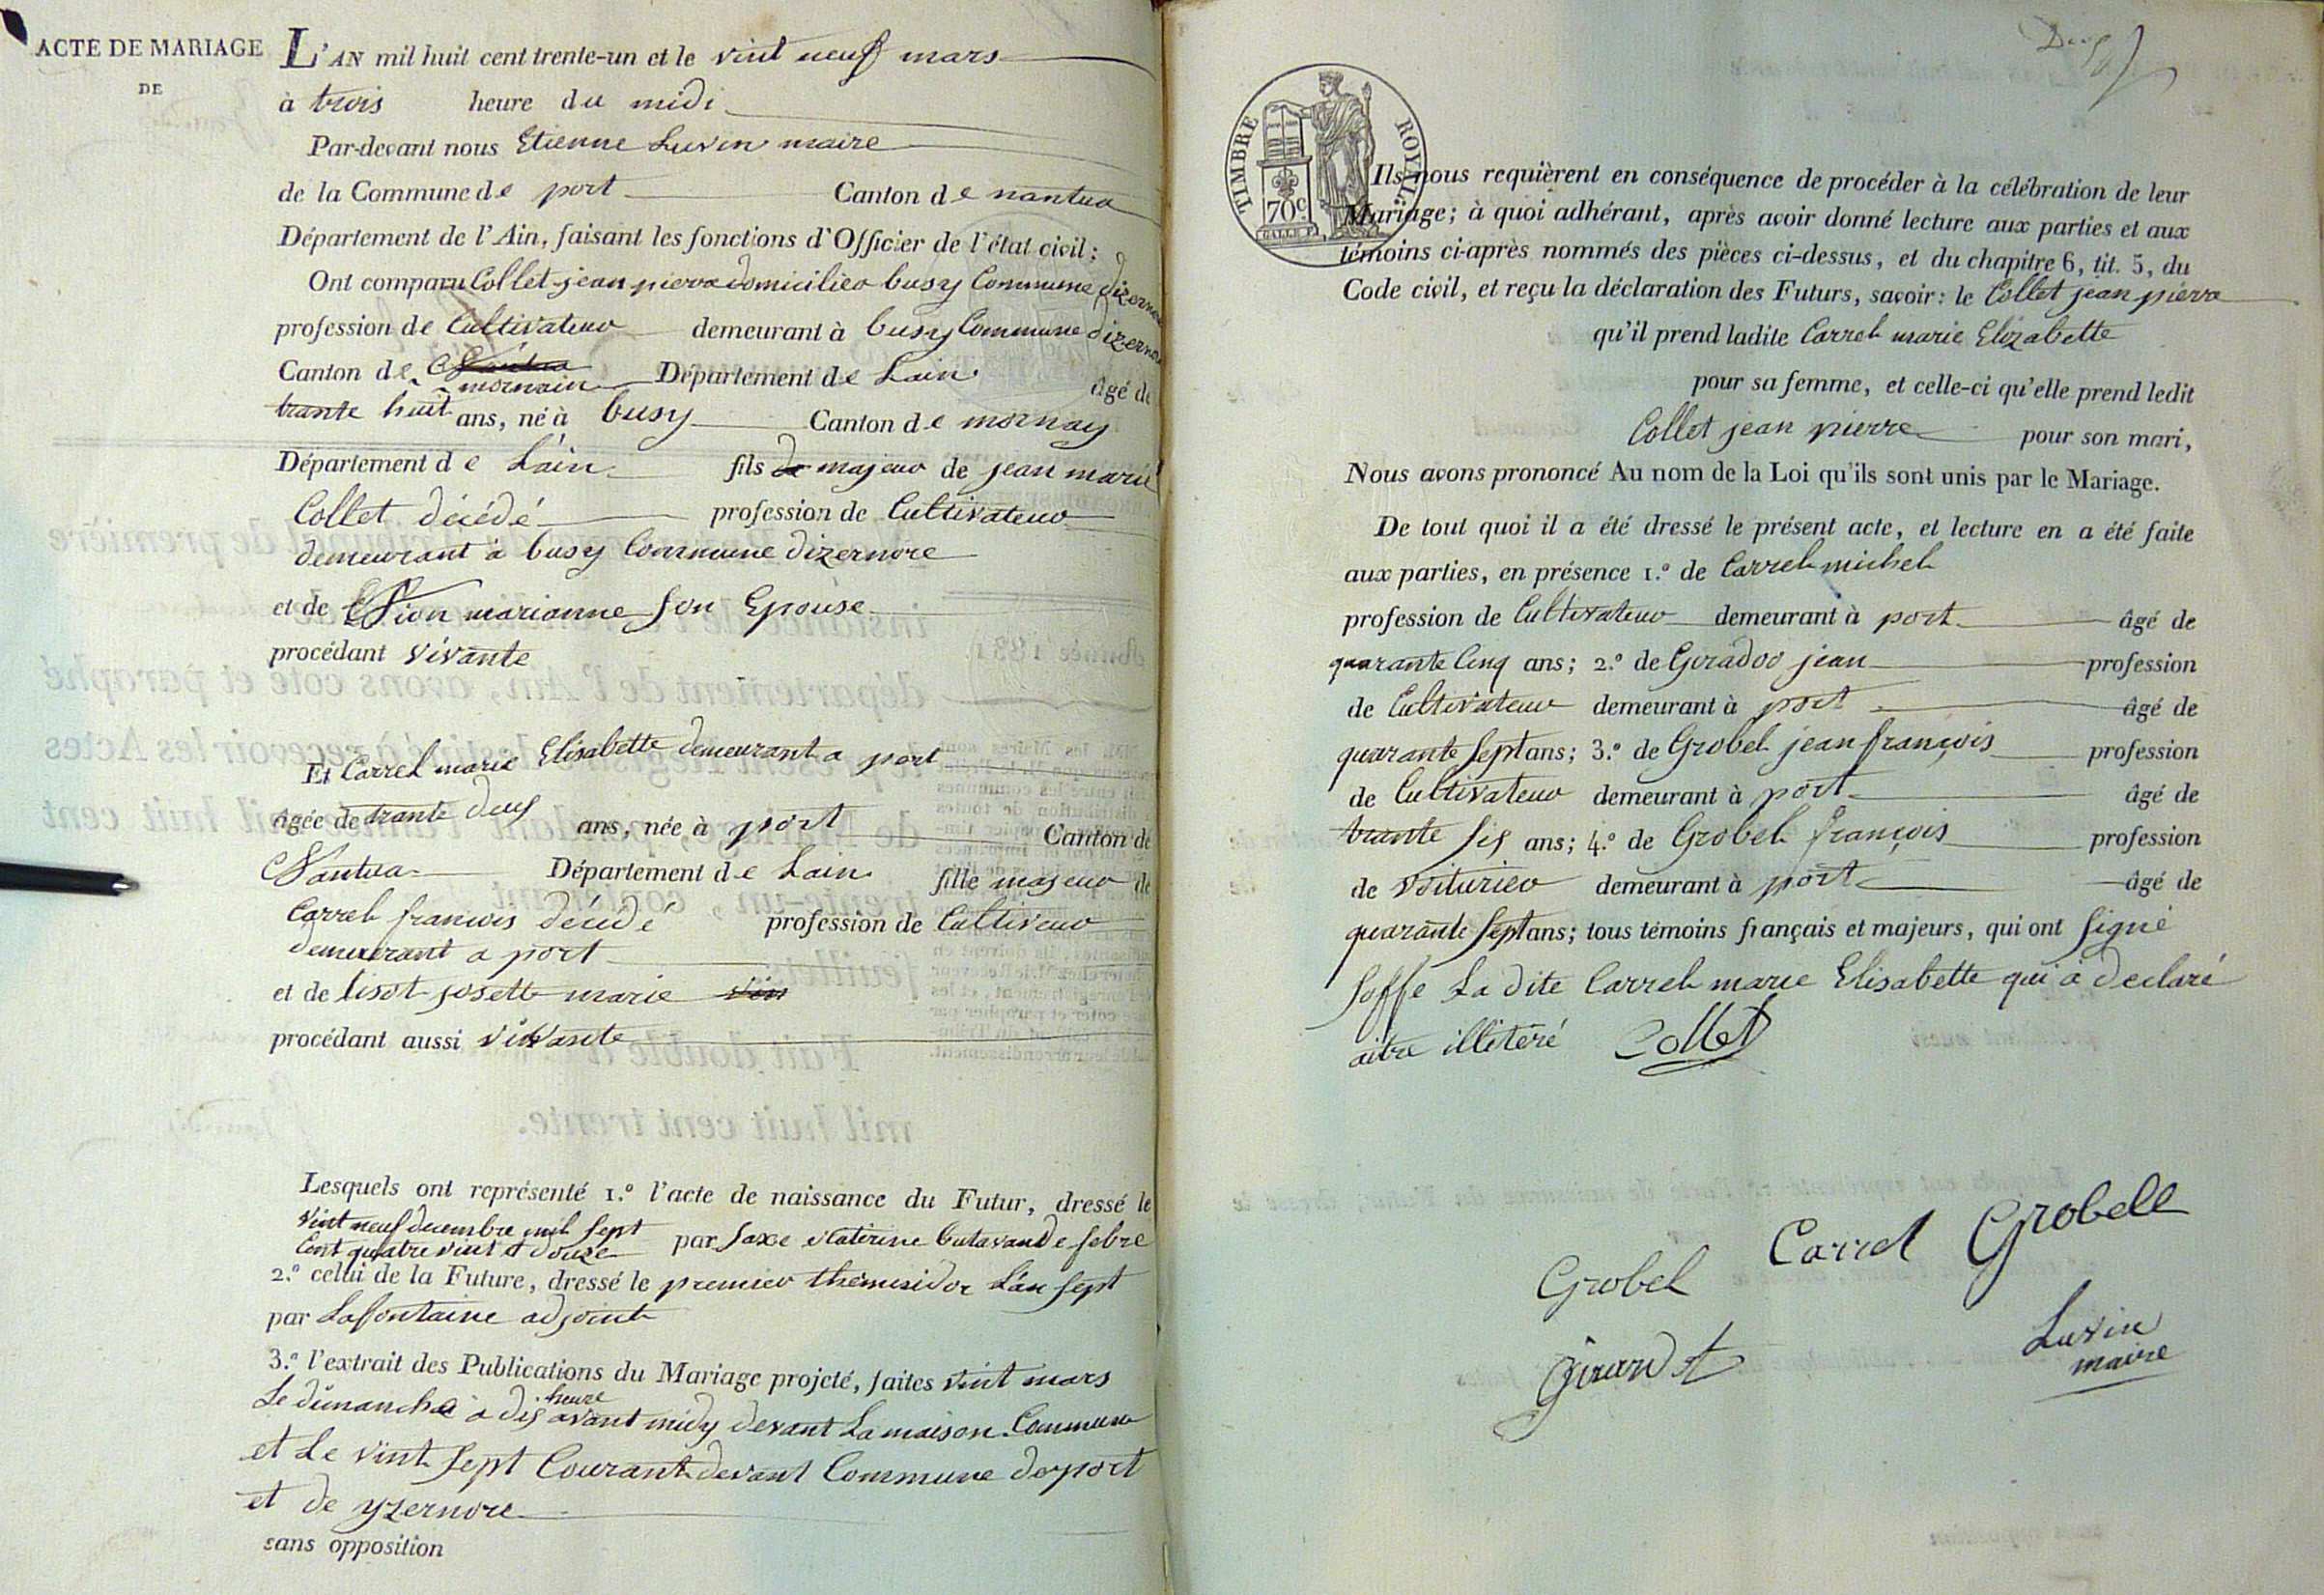 ACTE DE MARIAGE
DE
L'AN mil huit cent trente-un et le vint neuf mars
à trois heure du midi
Par-devant nous Etienne Luvin maire
de la Commune de port Canton de nantua
Département de l'Ain, faisant les fonctions d'Officier de l'état civil;
Ont comparu Collet jean pierre domicilier busy Commune dizernore
profession de Cultivateur demeurant à busy Commune dizernore
Canton de Nantua mornain Département de Lain âgé de
trante huit ans, né à busy Canton de mornay
Département de Lain fils de majeur de jean marie
Collet décédé profession de Cultivateur
demeurant à busy Commune dizernore
et de Sion marianne son Epouse
procédant vivante
Et Carrel marie Elisabette demeurant a port
âgée de trante deus ans, née à port Canton de
Nantua Département de Lain fille majeur de
Carrel francois décédé profession de Cultiveur
demeurant a port
et de lisot josette marie viv
procédant aussi vivante
Lesquels ont représenté 1.º l'acte de naissance du Futur, dressé le
vint neuf decembre mil sept
Cent quatre vint et douze par saxe
2.º celui de la Future, dressé le premier thermidor Lan sept
par Lafontaine adjoint
3.º l'extrait des Publications du Mariage projeté, faites vint mars
Le dimanche à dis heure avant midy devant La maison Commune
et Le vint sept Courant devant Commune de port
et de yzernore
sans opposition
TIMBRE ROYAL
70c
GALLE F.
Ils nous requièrent en conséquence de procéder à la célébration de leur
Mariage; à quoi adhérant, après avoir donné lecture aux parties et aux
témoins ci-après nommés des pièces ci-dessus, et du chapitre 6, tit. 5, du
Code civil, et reçu la déclaration des Futurs, savoir: le Collet jean pierre
qu'il prend ladite Carrel marie Elizabette
pour sa femme, et celle-ci qu'elle prend ledit
Collet jean pierre pour son mari,
Nous avons prononcé Au nom de la Loi qu'ils sont unis par le Mariage.
De tout quoi il a été dressé le présent acte, et lecture en a été faite
aux parties, en présence 1.º de Carrel michel
profession de Cultivateur demeurant à port âgé de
quarante Cinq ans; 2.º de Girados jean profession
de Cultivateur demeurant à port âgé de
quarante sept ans; 3.º de Grobel jean françois profession
de Cultivateur demeurant à port âgé de
trante sis ans; 4.º de Grobel françois profession
de voiturier demeurant à port âgé de
quarante sept ans; tous témoins français et majeurs, qui ont signé
soffe La dite Carrel marie Elisabette qui a declaré
aitre illitéré Collet
Carrel Grobell
Grobel
Luvin
maire